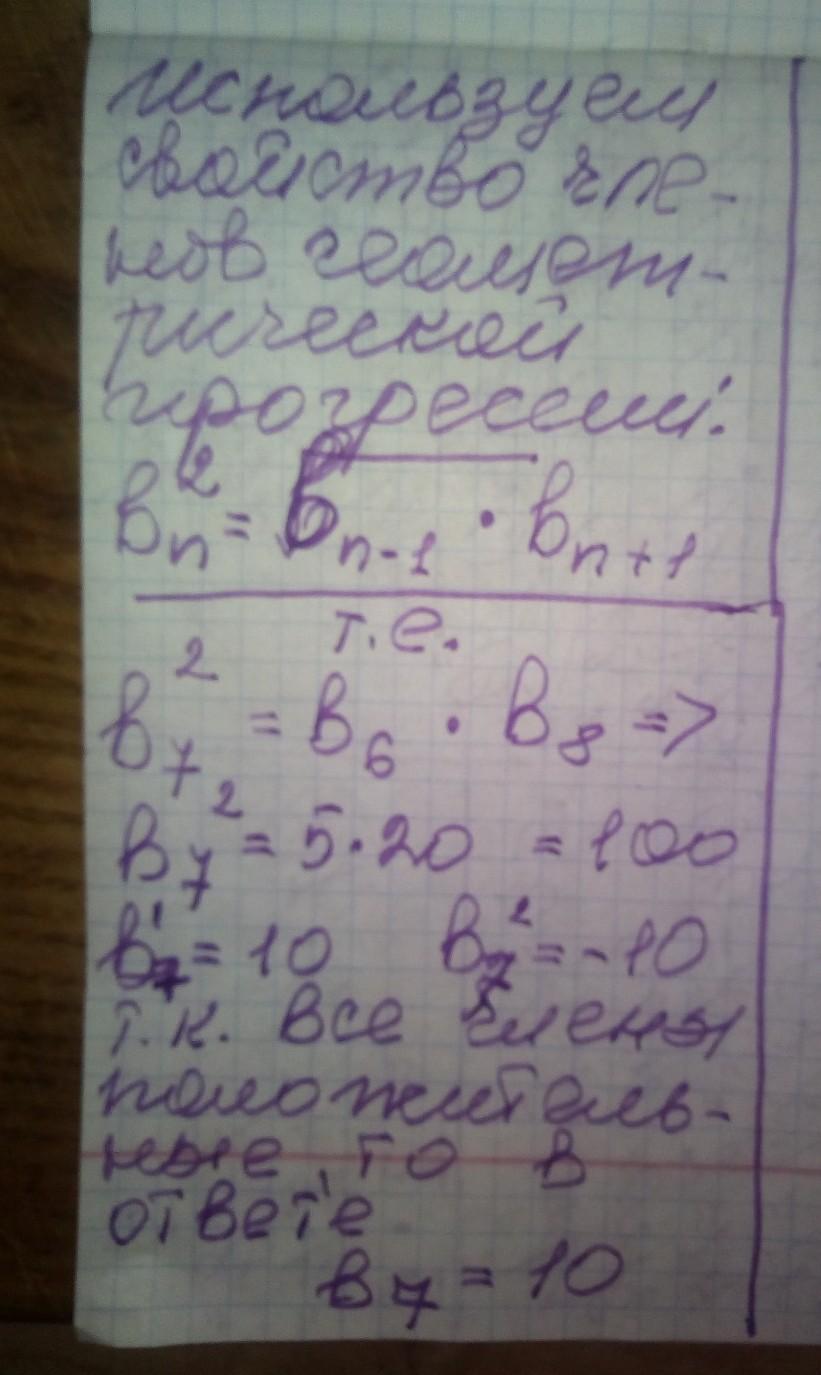 используем
свойство чле-
нов геомет-
рической
прогрессии:
bₙ² = bₙ₋₁ · bₙ₊₁
т.е.
b₇² = b₆ · b₈ =>
b₇² = 5·20 = 100
b₇¹ = 10 b₇² = -10
т.к. все члены
положитель-
ные, то в
ответе
b₇ = 10